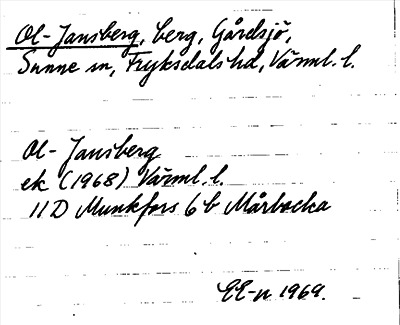 Ol-Jansberg, berg, Gårdsjö,
Sunne sn, Fryksdals hd, Värml. l.
Ol-Jansberg
ek (1968) Värml. l.
11D Munkfors 6b Mårbacka
EE-n 1969.